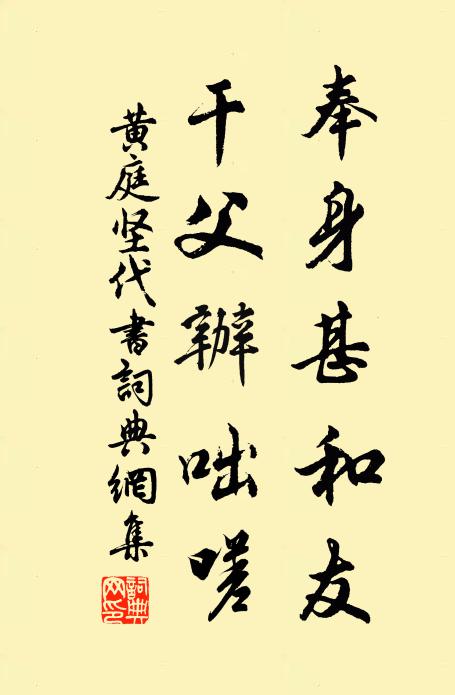 奉身甚和友
干父辦咄嗟
黄庭坚代書詞典網集
詞典网印